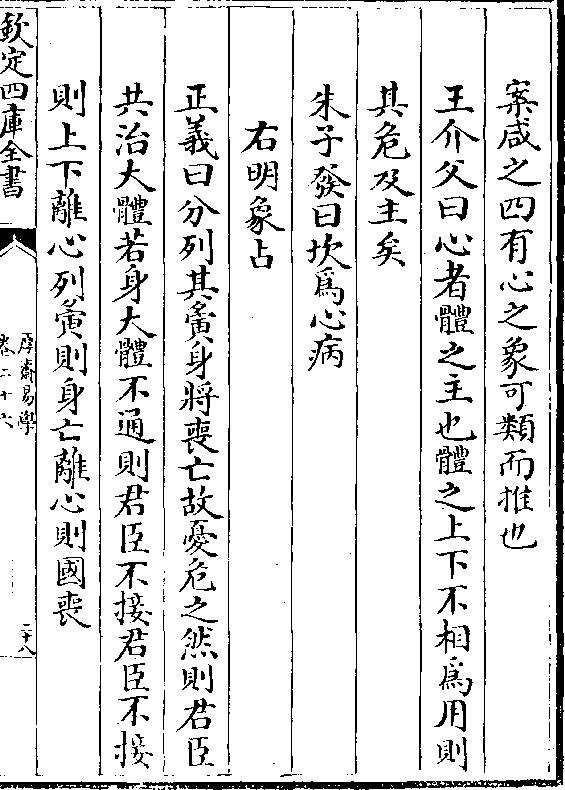 案咸之四有心之象可類而推也
王介父曰心者體之主也體之上下不相爲用則
其危及主矣
朱子發曰坎爲心病
右明象占
正義曰分列其夤身將喪亡故憂危之然則君臣
共治大體若身大體不通則君臣不接君臣不接
則上下離心列夤則身亡離心則國喪
欽定四庫全書
厚齋易學
卷二十六
二十八